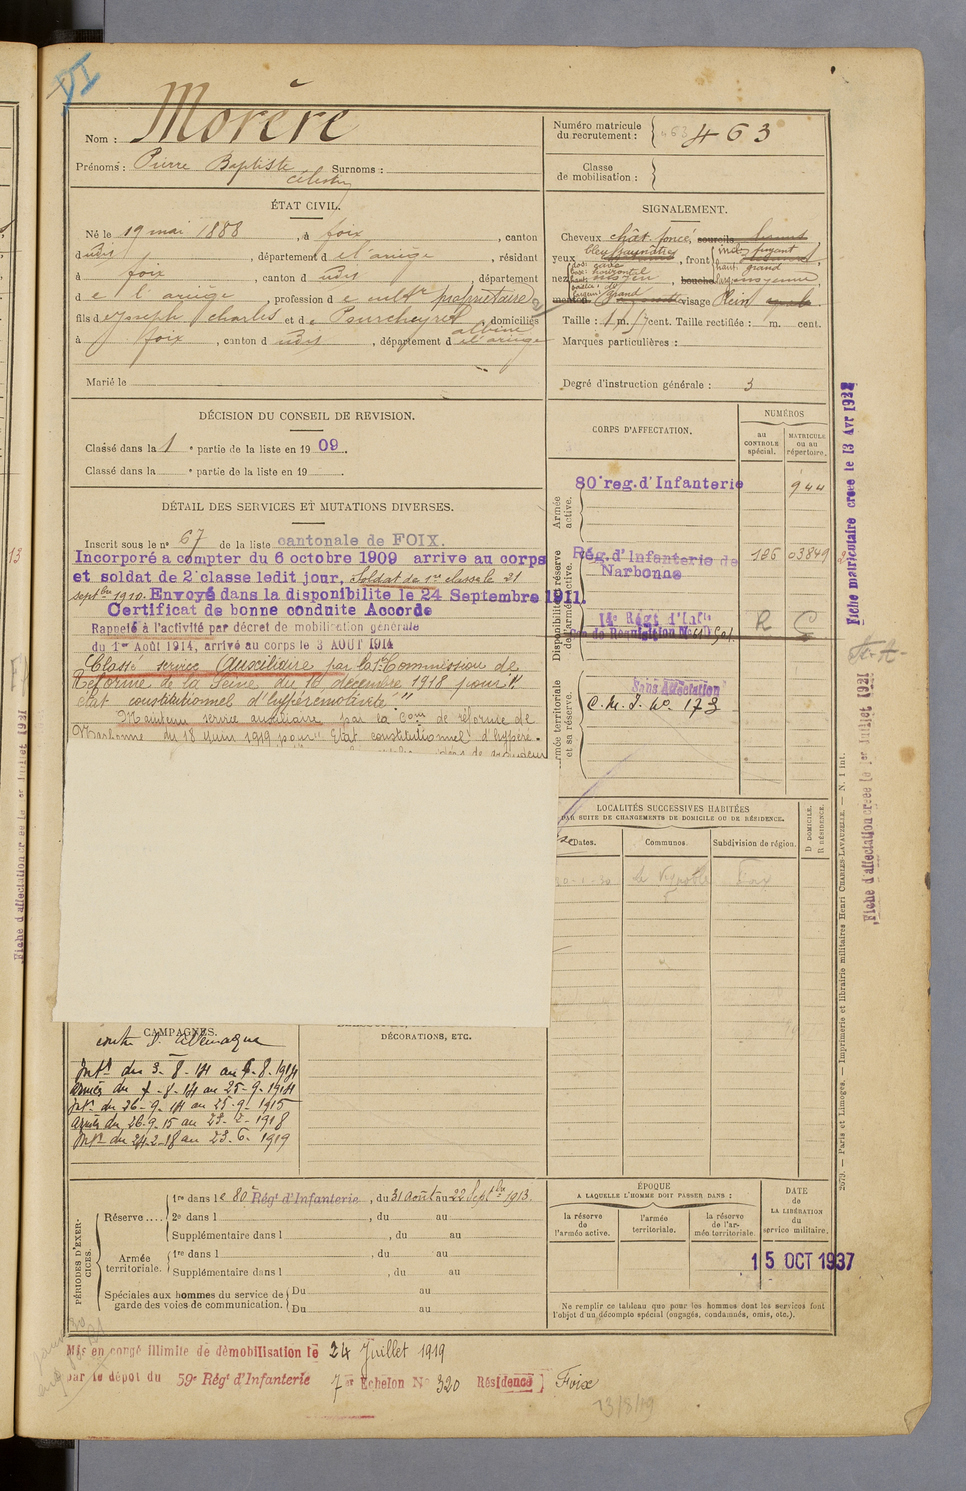 VI
Nom : Morère
Prénoms : Pierre Baptiste Surnoms :
Célestin
Numéro matricule
du recrutement : 463 463
Classe
de mobilisation :
ÉTAT CIVIL.
Né le 19 mai 1888, à foix, canton
dudit, département de l'ariège, résidant
à foix, canton dudit département
de l'ariège, profession de cultr propriétaire
fils de Joseph Charles et de, domiciliés
albine
à foix, canton dudit, département de l'ariège
Marié le
SIGNALEMENT.
Cheveux chât foncé, sourcils
yeux, front
nez moyen, bouche
menton visage plein
Taille : 1 m. 57 cent. Taille rectifiée : m. cent.
Marques particulières :
Degré d'instruction générale : 3
DÉCISION DU CONSEIL DE REVISION.
Classé dans la 1e partie de la liste en 1909.
Classé dans la e partie de la liste en 19
DÉTAIL DES SERVICES ET MUTATIONS DIVERSES.
Inscrit sous le n° 67 de la liste cantonale de FOIX.
Incorporé à compter du 6 octobre 1909 arrive au corps
et soldat de 2e classe ledit jour, Soldat de 1re classe le 21
septbre 1910. Envoyé dans la disponibilite le 24 Septembre 1911.
Certificat de bonne conduite Accordé
Rappelé à l'activité par décret de mobilisation générale
du 1er Août 1914, arrivé au corps le 3 AOUT 1914
Classé service Auxiliaire par la Commission de
Réforme de la Seine du 16 décembre 1918 pour "
état constitutionnel d'hyperémotivité"
Maintenu service auxiliaire par la Com de réforme de
Narbonne du 18 juin 1919 pour "Etat constitutionnel d'hypéré-
CORPS D'AFFECTATION.
NUMÉROS
au
CONTROLE
spécial.
MATRICULE
ou au
répertoire.
Armée
active.
80e reg. d'Infanterie 944
Disponibilité et réserve
de l'armée active.
Rég. d'Infanterie de
Narbonne 126 03849
14e Régt d'Inf
Armée territoriale
et sa réserve.
Sans Affectation
C. M. I. No 173
LOCALITÉS SUCCESSIVES HABITÉES
PAR SUITE DE CHANGEMENTS DE DOMICILE OU DE RÉSIDENCE.
Dates. Communes. Subdivision de région. D DOMICILE. R RÉSIDENCE.
Le Vignoble Foix
CAMPAGNES.
contre l'Allemagne
Intr du 3-8-14 au 6-8-1914
armées du 7-8-14 au 25-9-1914
Intr du 26-9-14 au 25-9-1915
armées du 26-9-15 au 23-2-1918
Intr du 24-2-18 au 23-6-1919
DÉCORATIONS, ETC.
PÉRIODES D'EXERCICES.
Réserve....
1re dans le 80e Régt d'Infanterie, du 31 août au 22 Septbre 1913.
2e dans l, du au
Supplémentaire dans l, du au
Armée
territoriale.
1re dans l, du au
Supplémentaire dans l, du au
Spéciales aux hommes du service de
garde des voies de communication.
Du au
Du au
ÉPOQUE
A LAQUELLE L'HOMME DOIT PASSER DANS :
la réserve
de
l'armée active.
l'armée
territoriale.
la réserve
de l'ar-
mée territoriale.
DATE
de
LA LIBÉRATION
du
service militaire.
15 OCT 1937
Ne remplir ce tableau que pour les hommes dont les services font
l'objet d'un décompte spécial (engagés, condamnés, omis, etc.).
Mis en congé illimité de démobilisation le 24 Juillet 1919
par le dépôt du 59e Régt d'Infanterie 7er Échelon N° 320 Résidence Foix
13/8/19
Fiche matriculaire créée le 13 Avr 1932
Fiche d'affectation créée le 1er Juillet 1921
2079. — Paris et Limoges. — Imprimerie et librairie militaires Henri CHARLES-LAVAUZELLE. — N. 1 int.
Fiche d'affectation créée le 1er Juillet 1921
13